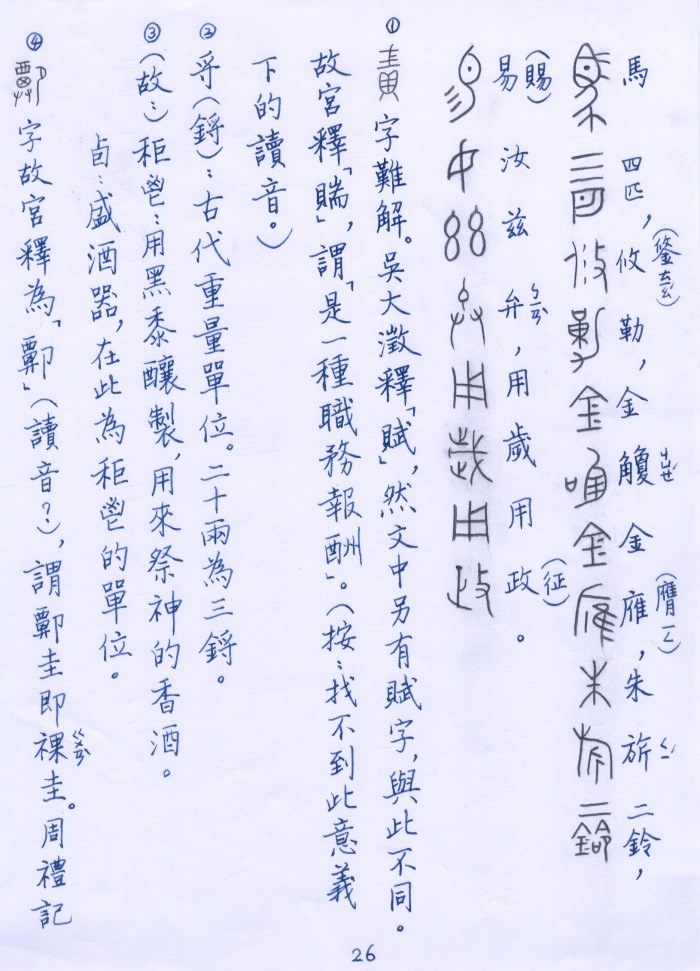 馬 四匹，攸(鋚ㄊㄧㄠˊ)勒，金觼 金雁(膺ㄧㄥ)，朱旂ㄑㄧˊ二鈴，
易(賜)汝茲弁ㄅㄧㄢˋ，用歲用政(征)。
① 字難解。吳大澂釋「賦」，然文中另有賦字，與此不同。
故宮釋「貒」，謂「是一種職務報酬」。(按：找不到此意義
下的讀音。)
② 寽(鋝)：古代重量單位。二十兩為三鋝。
③ (故：)秬鬯：用黑黍釀製，用來祭神的香酒。
卣：盛酒器，在此為秬鬯的單位。
④ 字故宮釋為「鄸」(讀音？)，謂鄸圭即祼ㄍㄨㄢˋ圭。周禮記
26